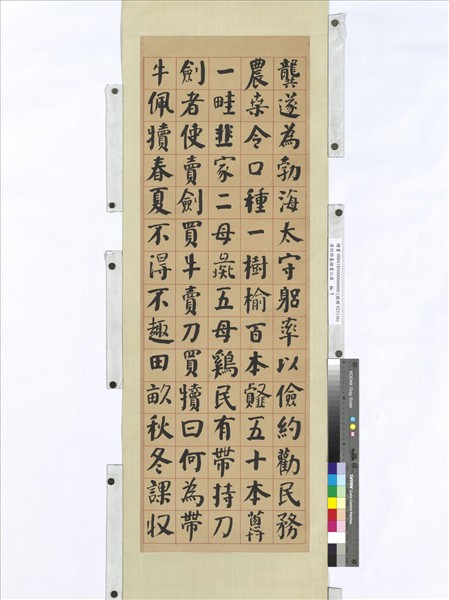 龔遂為勃海太守躳率以儉約勸民務
農桒令口種一樹榆百本䪥五十本
一畦韭家二母彘五母鷄民有帶持刀
劍者使賣劍買牛賣刀買犢曰何為帶
牛佩犢春夏不得不趣田畝秋冬課収